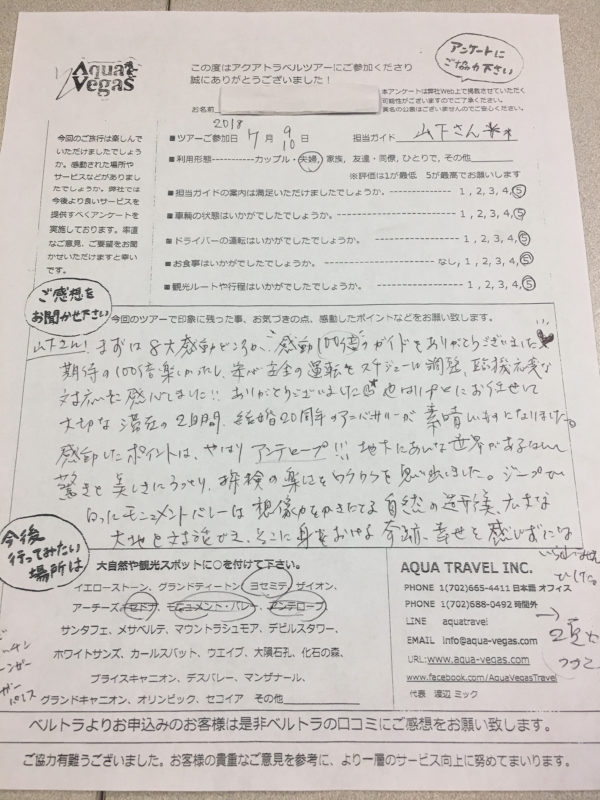 Aqua Vegas
この度はアクアトラベルツアーにご参加くださり
誠にありがとうございました！
アンケートに
ご協力下さい
お名前
本アンケートは弊社Web上で掲載させていただく
可能性がございますのでご了承ください。
実名の公表はございませんのでご安心ください。
今回のご旅行は楽しんで
いただけましたでしょう
か。感動された場所や
サービスなどがありまし
たでしょうか。弊社では
今後より良いサービスを
提供すべくアンケートを
実施しております。率直
なご意見、ご要望をお聞
かせいただけますと幸い
です。
■ツアーご参加日 2018 7月 9 10 日 担当ガイド 山下さん
■利用形態------------カップル・夫婦、家族、友達・同僚、ひとりで、その他
※評価は1が最低　5が最高でお願いします
■担当ガイドの案内は満足いただけましたでしょうか。 1, 2, 3, 4, 5
■車輌の状態はいかがでしたでしょうか。 1, 2, 3, 4, 5
■ドライバーの運転はいかがでしたでしょうか。 1, 2, 3, 4, 5
■お食事はいかがでしたでしょうか。 なし, 1, 2, 3, 4, 5
■観光ルートや行程はいかがでしたでしょうか。 1, 2, 3, 4, 5
ご感想を
お聞かせ下さい
今回のツアーで印象に残った事、お気づきの点、感動したポイントなどをお願い致します。
山下さん！まずは8大感動どころか、感動100倍のガイドをありがとうございました
期待の100倍楽しかったし、安全の運転もスケジュール調整、臨機応変な
対応にも感心しました!! ありがとうございました
大切な滞在の2日間、結婚20周年のアニバーサリーが素晴しいものになりました。
感動したポイントは、やはりアンテロープ!!! 地下にあんな世界があるなんて
驚きと美しさにうっとり、探検の楽しさとワクワクを思い出しました。ジープで
回ったモニュメントバレーは想像力をかきたてる自然の造形美、広大な
大地と そこに身をおける奇跡、幸せを感じずには
いられませんでした。
今後
行ってみたい
場所は
大自然や観光スポットに○を付けて下さい。
イエローストーン、グランドティートン、ヨセミテ、ザイオン、
アーチーズ、セドナ、モニュメント・バレー、アンテロープ、
サンタフェ、メサベルテ、マウントラシュモア、デビルスタワー、
ホワイトサンズ、カールスバット、ウエイブ、大隕石孔、化石の森、
ブライスキャニオン、デスバレー、マンザナール、
グランドキャニオン、オリンピック、セコイア　その他
AQUA TRAVEL INC.
PHONE 1(702)665-4411 日本語 オフィス
PHONE 1(702)688-0492 時間外
LINE aquatravel
EMAIL info@aqua-vegas.com
URL:www.aqua-vegas.com
www.facebook.com/AquaVegasTravel
代表　渡辺 ミック
→
2頁
ベルトラよりお申込みのお客様は是非ベルトラの口コミにご感想をお願い致します。
ご協力有難うございました。お客様の貴重なご意見を参考に、より一層のサービス向上に努めてまいります。